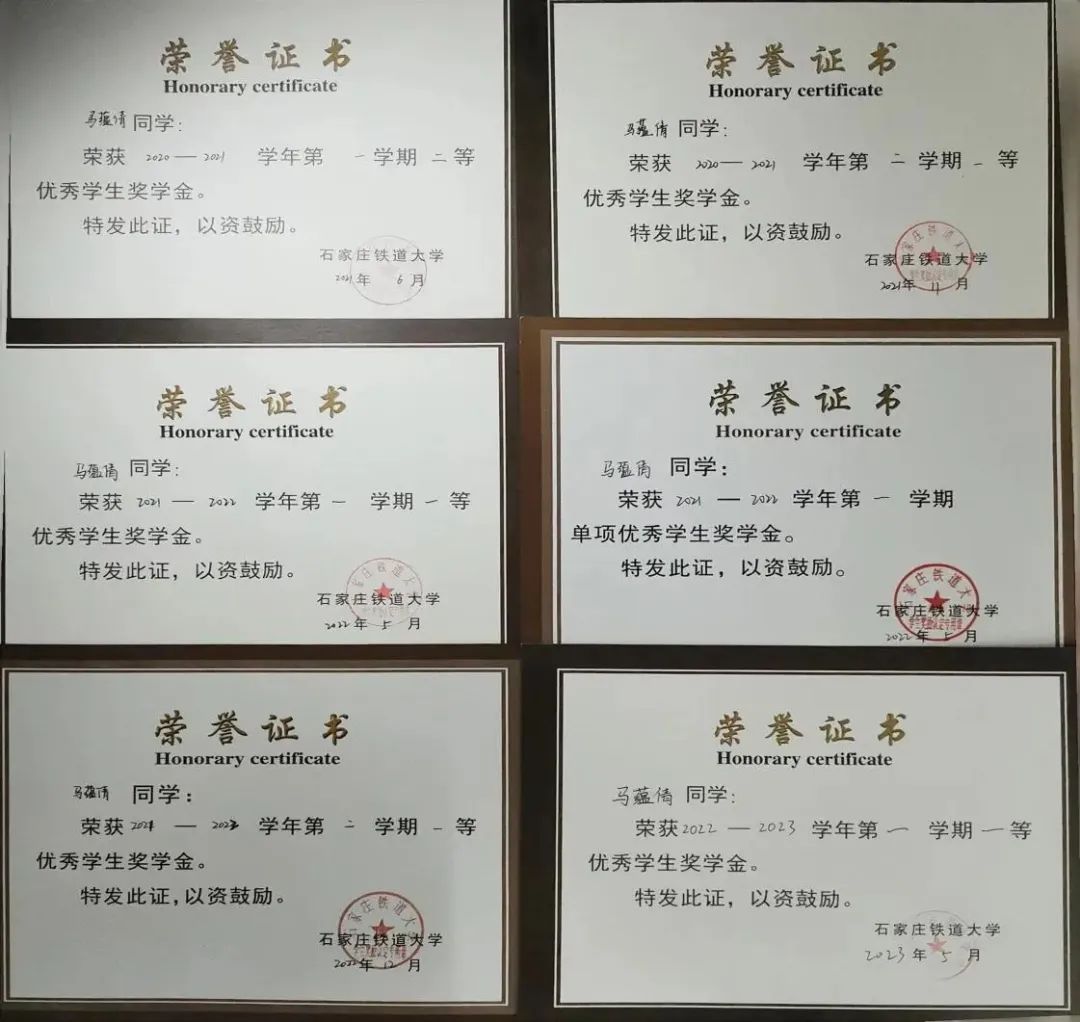 荣誉证书
Honorary certificate
马蕴倩同学:
荣获 2020—2021 学年第一学期二等
优秀学生奖学金。
特发此证，以资鼓励。
石家庄铁道大学
2021年6月
荣誉证书
Honorary certificate
马蕴倩同学:
荣获 2020—2021 学年第二学期一等
优秀学生奖学金。
特发此证，以资鼓励。
石家庄铁道大学
2021年11月
荣誉证书
Honorary certificate
马蕴倩同学:
荣获 2021—2022 学年第一学期一等
优秀学生奖学金。
特发此证，以资鼓励。
石家庄铁道大学
2022年5月
荣誉证书
Honorary certificate
马蕴倩同学:
荣获 2021—2022 学年第一学期
单项优秀学生奖学金。
特发此证，以资鼓励。
石家庄铁道大学
2022年5月
荣誉证书
Honorary certificate
马蕴倩同学:
荣获 — 学年第二学期一等
优秀学生奖学金。
特发此证,以资鼓励。
石家庄铁道大学
2022年12月
荣誉证书
Honorary certificate
马蕴倩同学:
荣获2022—2023 学年第一学期一等
优秀学生奖学金。
特发此证，以资鼓励。
石家庄铁道大学
2023年5月